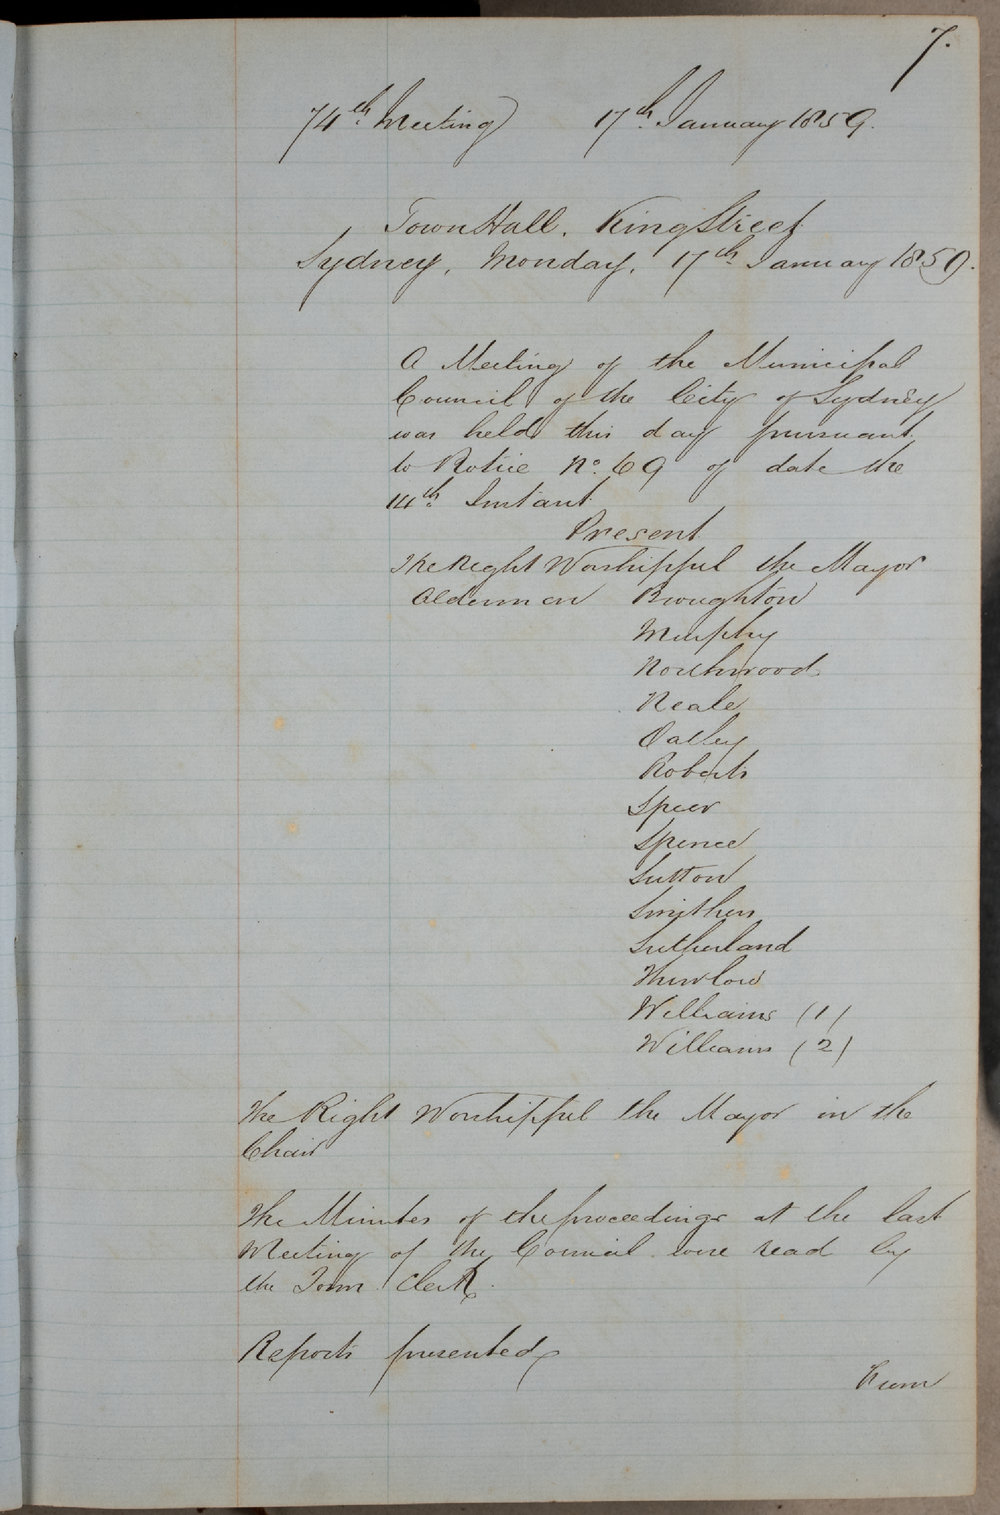 7.
74th Meeting 17th January 1859.
Town Hall. King Street
Sydney, Monday, 17th January 1859.
A Meeting of the Municipal
Council of the City of Sydney
was held this day pursuant
to Notice No. 69 of date the
14th Instant
Present
The Right Worshipful the Mayor
Aldermen Broughton
Murphy
Northwood
Neale
Oatley
Roberts
Speer
Spence
Sutton
Smithers
Sutherland
Thurlow
Williams (1)
Williams (2)
The Right Worshipful the Mayor in the
Chair
The Minutes of the proceedings at the last
Meeting of the Council were read by
the Town Clerk.
Reports presented
From